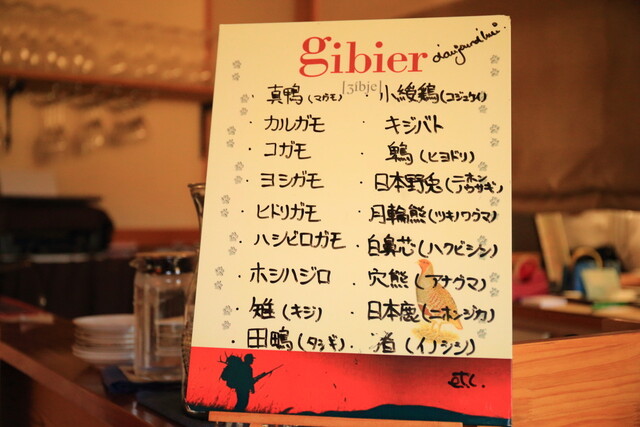 gibier aujourd'hui
[ʒibje]
・真鴨(マガモ)
・カルガモ
・コガモ
・ヨシガモ
・ヒドリガモ
・ハシビロガモ
・ホシハジロ
・雉(キジ)
・田鴫(タシギ)
・小綬鶏(コジュケイ)
・キジバト
・鵯(ヒヨドリ)
・日本野兎(ニホンノウサギ)
・月輪熊(ツキノワグマ)
・白鼻芯(ハクビシン)
・穴熊(アナグマ)
・日本鹿(ニホンジカ)
・猪(イノシシ)
etc.